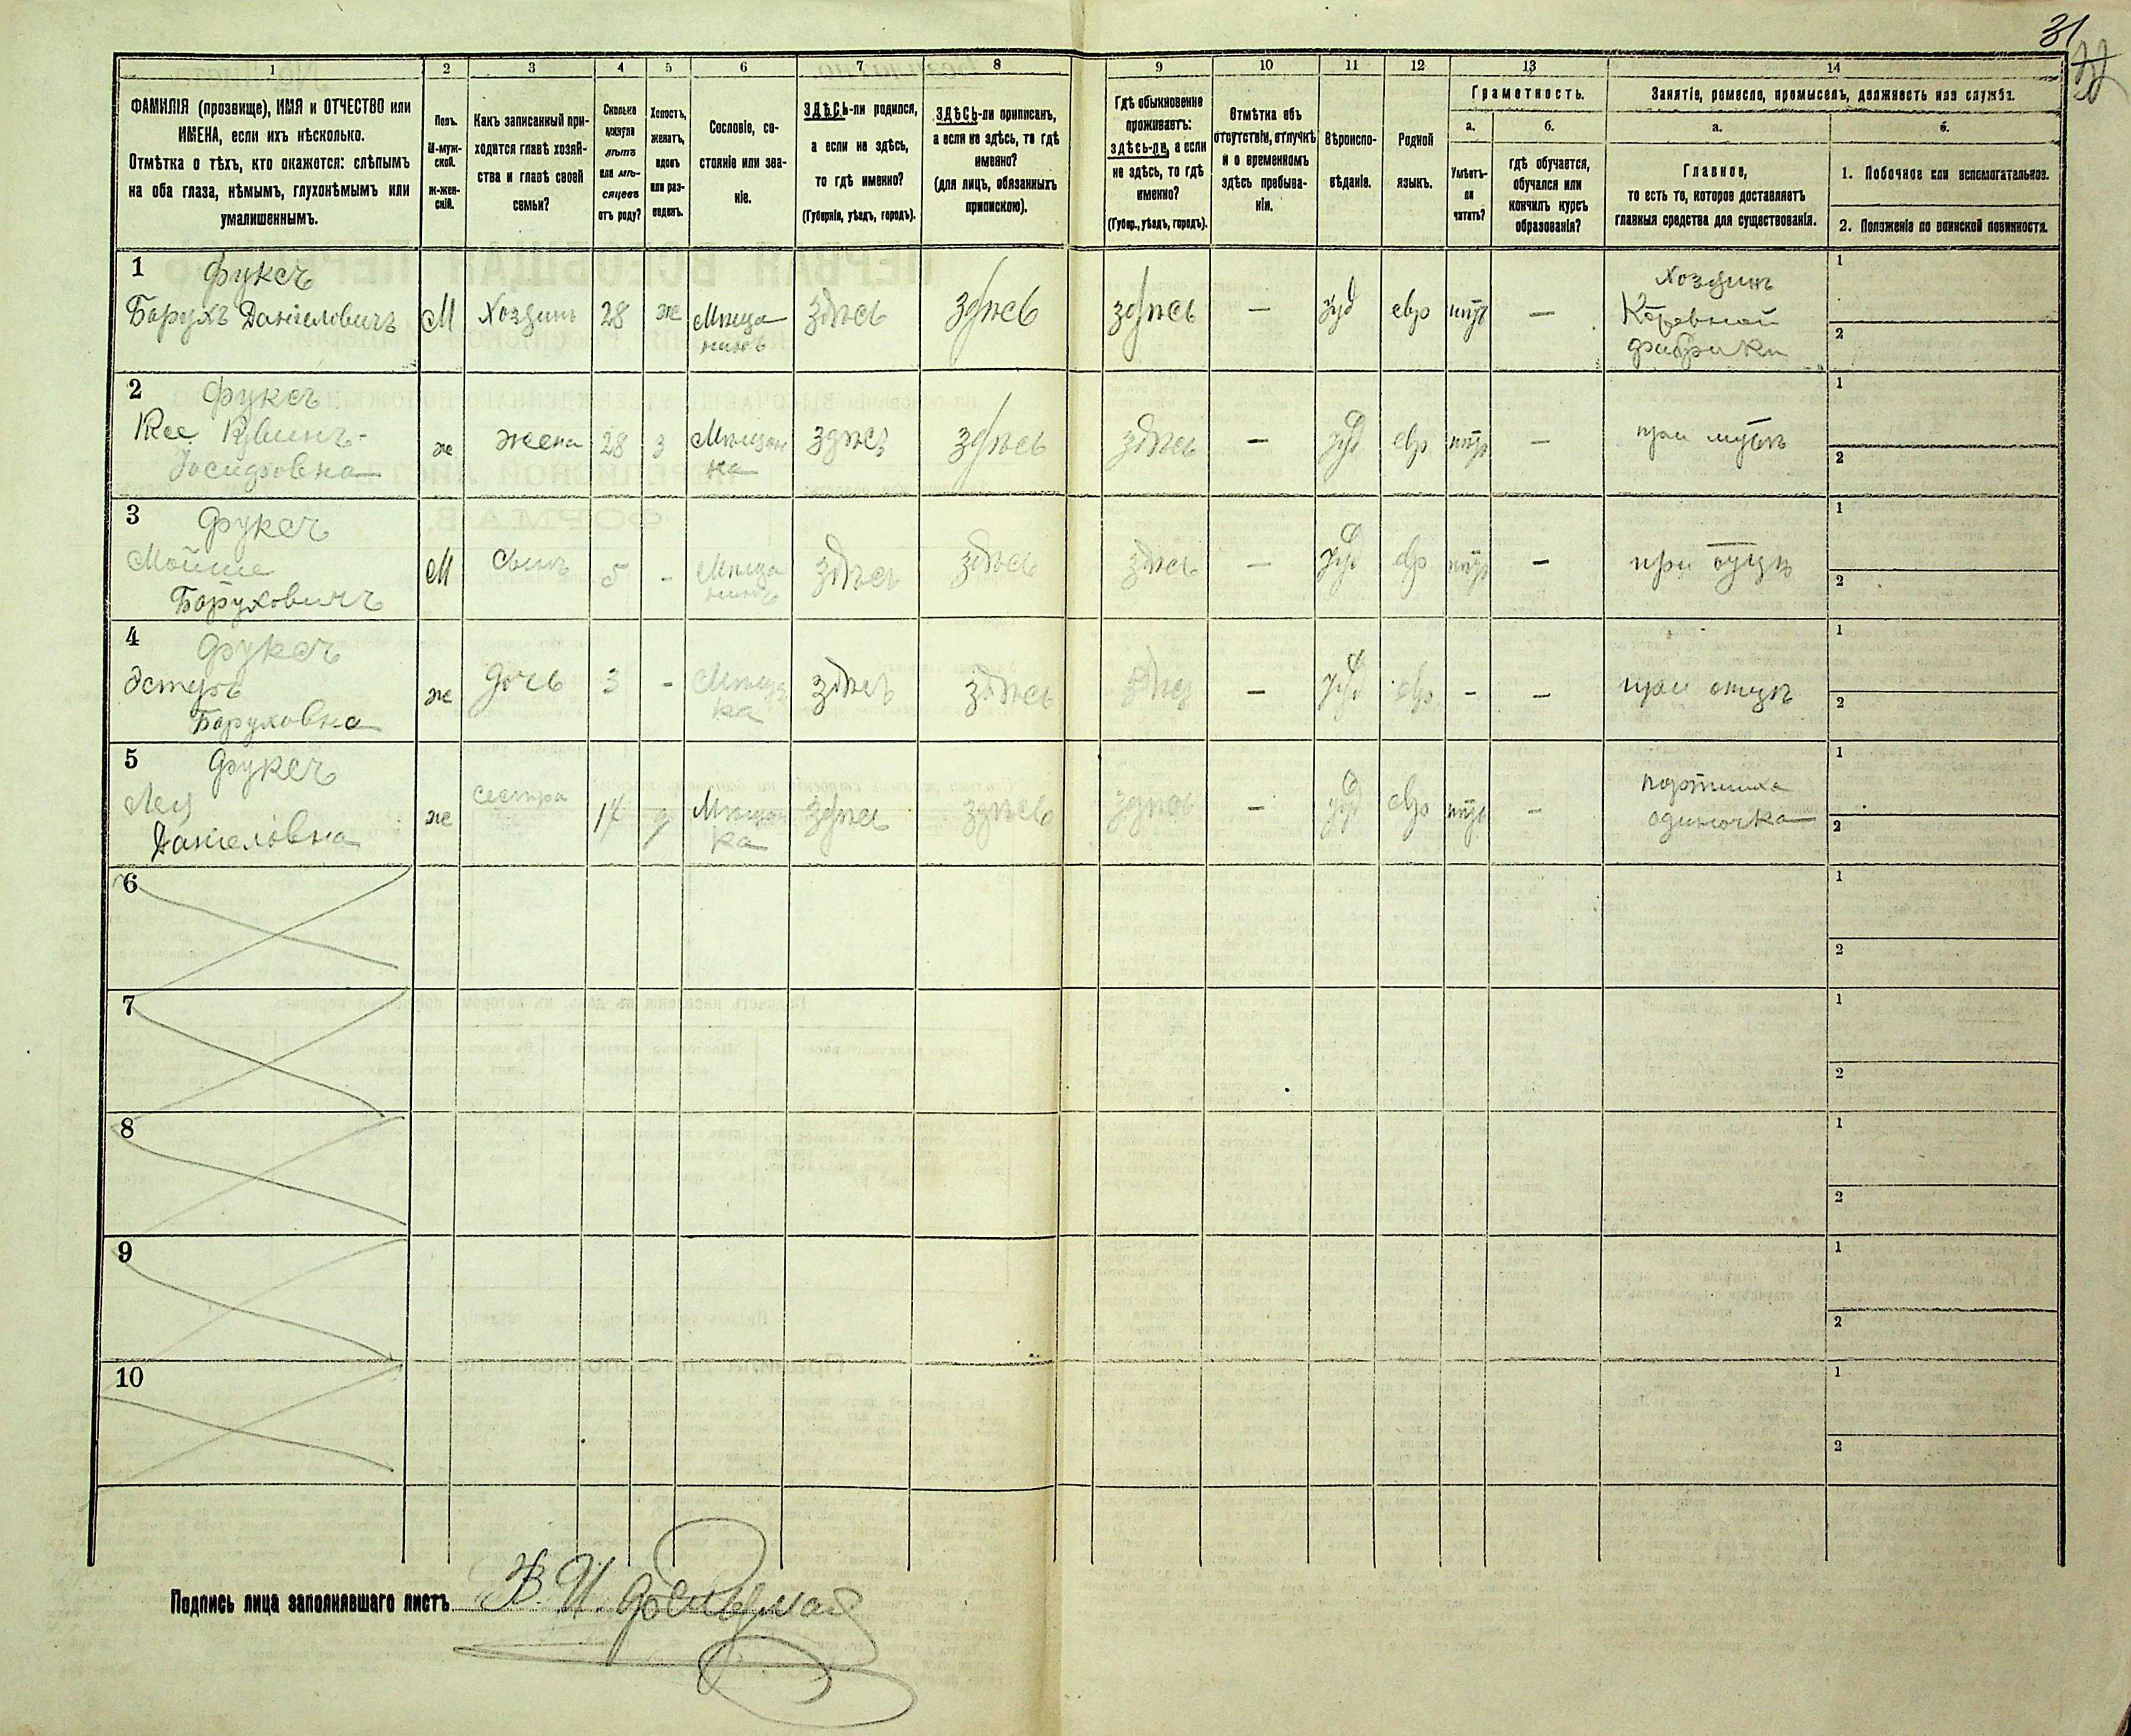 31
1 2 3 4 5 6 7 8 9 10 11 12 13 14
ФАМИЛІЯ (прозвище), ИМЯ и ОТЧЕСТВО или
ИМЕНА, если ихъ нѣсколько.
Отмѣтка о тѣхъ, кто окажется: слѣпымъ
на оба глаза, нѣмымъ, глухонѣмымъ или
умалишеннымъ.
Полъ.
М-муж-
ской.
Ж-жен-
скій.
Какъ записанный при-
ходится главѣ хозяй-
ства и главѣ своей
семьи?
Сколько
минуло
лѣтъ
или мѣ-
сяцевъ
отъ роду?
Холостъ,
женатъ,
вдовъ
или раз-
веденъ.
Сословіе, со-
стояніе или зва-
ніе.
ЗДѢСЬ-ли родился,
а если не здѣсь,
то гдѣ именно?
(Губернія, уѣздъ, городъ).
ЗДѢСЬ-ли приписанъ,
а если не здѣсь, то гдѣ
именно?
(для лицъ, обязанныхъ
припискою).
Гдѣ обыкновенно
проживаетъ:
здѣсь-ли, а если
не здѣсь, то гдѣ
именно?
(Губер., уѣздъ, городъ).
Отмѣтка объ
отсутствіи, отлучкѣ
и о временномъ
здѣсь пребыва-
ніи.
Вѣроиспо-
вѣданіе.
Родной
языкъ.
Грамотность.
а.
Умѣетъ-
ли
читать?
б.
гдѣ обучается,
обучался или
кончилъ курсъ
образованія?
Занятіе, ремесло, промыселъ, должность или служба.
а.
Главное,
то есть то, которое доставляетъ
главныя средства для существованія.
б.
1. Побочное или вспомогательное.
2. Положеніе по воинской повинности.
1 Фуксъ
Борухъ Даніеловичъ М Хозяинъ 28 ж Мѣща
нинъ здѣсь здѣсь здѣсь — Іуд евр —
Хозяинъ
фабрики
1
2
2 Фуксъ
Іосифовна ж жена 28 з Мѣщан
ка здѣсь здѣсь здѣсь — Іуд евр —
при мужѣ
1
2
3 Фуксъ
Мойше
Боруховичъ М Сынъ 5 - Мѣща
нинъ здѣсь здѣсь здѣсь — Іуд евр —
при отцѣ
1
2
4 Фуксъ
Эстеръ
Боруховна ж Дочь 3 - Мѣщан
ка здѣсь здѣсь здѣсь — Іуд евр - —
при отцѣ
1
2
5 Фуксъ
Лея
Даніеловна ж сестра 17 д Мѣщан
ка здѣсь здѣсь здѣсь — Іуд евр —
портниха
одиночка
1
2
6 1
2
7 1
2
8 1
2
9 1
2
10 1
2
Подпись лица заполнявшаго листъ